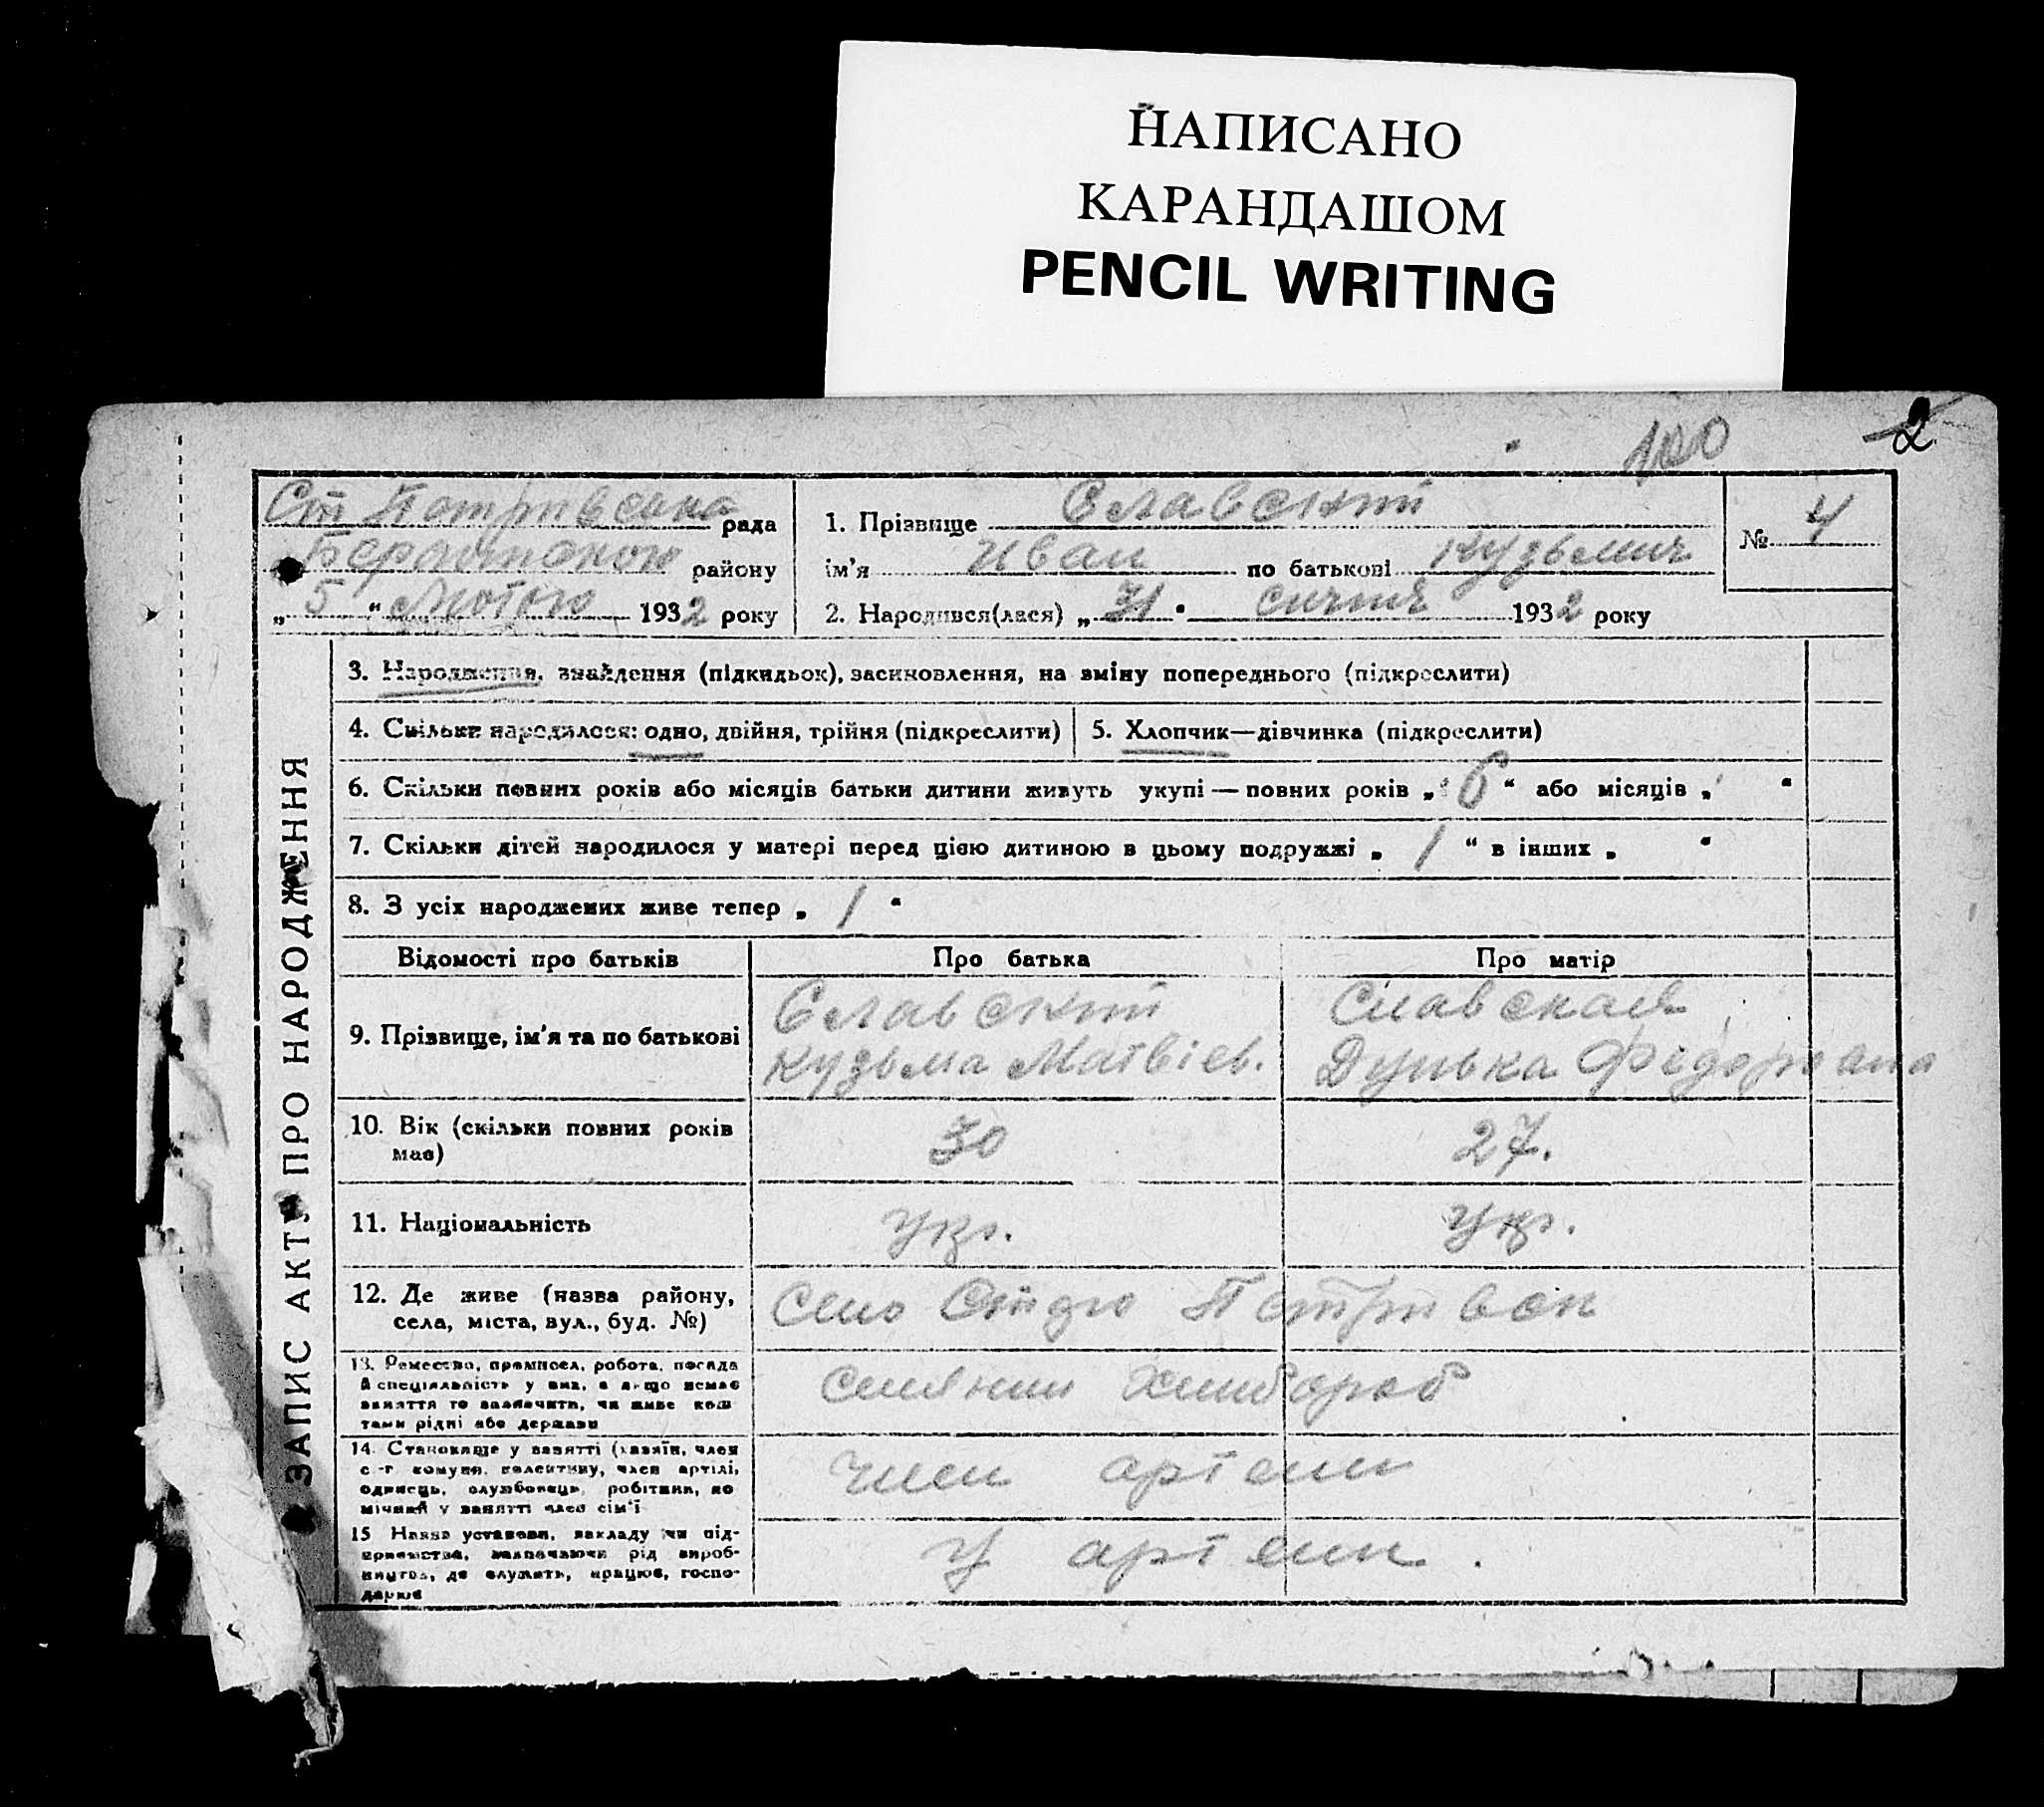 НАПИСАНО
КАРАНДАШОМ
PENCIL WRITING
100
2
Ст Петривська рада
району
„ 5 “ Лютого 1932 року
1. Прізвище Славский
ім'я Иван по батькові Кузьмич
2. Народився(лася) „ 31 “ сичня 1932 року
№ 4
ЗАПИС АКТУ ПРО НАРОДЖЕННЯ
3. Народження, знайдення (підкидьок), засиновлення, на зміну попереднього (підкреслити)
4. Скільки народилося: одно, двійня, трійня (підкреслити)
5. Хлопчик—дівчинка (підкреслити)
6. Скільки повних років або місяців батьки дитини живуть укупі — повних років „ 6 “ або місяців „ “
7. Скільки дітей народилося у матері перед цією дитиною в цьому подружжі „ 1 “ в інших „ “
8. З усіх народжених живе тепер „ 1 “
Відомості про батьків
Про батька
Про матір
9. Прізвище, ім'я та по батькові
Славский
Кузьма Матвіев.
Славская
Дунька
10. Вік (скільки повних років
має)
30
27.
11. Національність
укр.
укр.
12. Де живе (назва району,
села, міста, вул., буд. №)
Село
13. Ремество, промисел, робота, посада
й спеціяльність у них, а якщо немає
заняття то зазначити, чи живе кош
тами рідні або держави
селянин хлибороб
14. Становище у занятті (хазяїн, член
с.-г. комуни, колективу, член артілі,
одинець, службовець, робітник, по
мічний у занятті член сім'ї
член артели
15 Назва установи, закладу чи під-
приємства, зазначаючи рід вироб-
ництва, де служить, працює, госпо-
дарює
У артели .